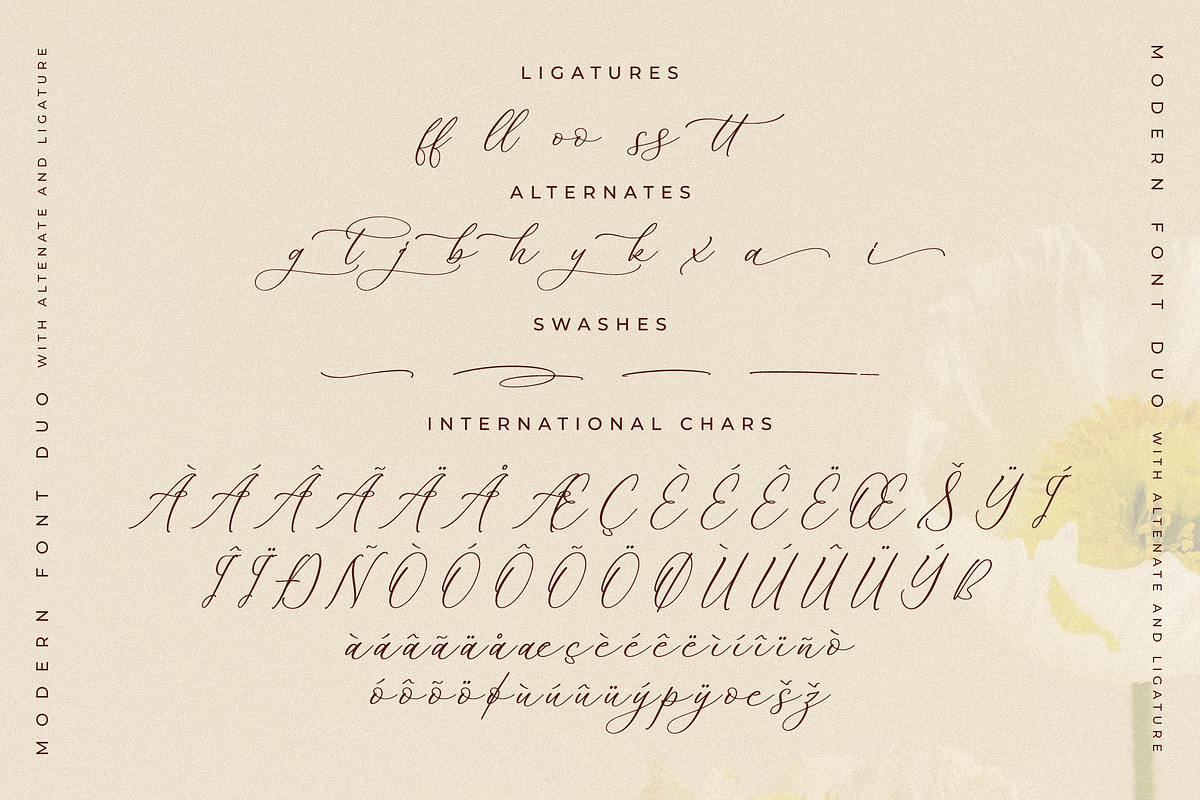 MODERN FONT DUO WITH ALTENATE AND LIGATURE
LIGATURES
ff ll oo ss tt
ALTERNATES
g t j b h y k x a i
SWASHES
INTERNATIONAL CHARS
À Á Â Ã Ä Å Æ Ç È É Ê Ë Œ Š Ÿ Í
Î Ï Ð Ñ Ò Ó Ô Õ Ö Ø Ù Ú Û Ü Ý ß
àáâãäåæçèéêëìíîïñò
óôõöøùúûüýþÿœšž
MODERN FONT DUO WITH ALTENATE AND LIGATURE